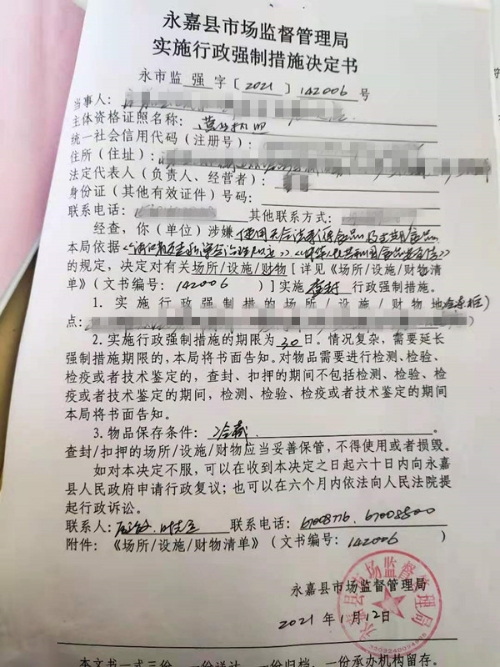 永嘉县市场监督管理局
实施行政强制措施决定书
永市监 强 字〔 2021 〕 142006 号
当事人：
主体资格证照名称：
统一社会信用代码（注册号）：
住所（住址）：
法定代表人（负责人、经营者）：
身份证（其他有效证件）号码：
联系电话： 其他联系方式：
经查，你（单位）涉嫌 使用无合法来源食品及过期食品
本局依据 》、《中华人民共和国食品安全法》
的规定，决定对有关场所/设施/财物［详见《场所/设施/财物清
单》（文书编号： 142006 ）］实施 查封 行政强制措施。
1. 实施行政强制措的场所/设施/财物地
点：
2. 实施行政强制措施的期限为 30 日。情况复杂，需要延长
强制措施期限的，本局将书面告知。对物品需要进行检测、检验、
检疫或者技术鉴定的，查封、扣押的期间不包括检测、检验、检
疫或者技术鉴定的期间，检测、检验、检疫或者技术鉴定的期间
本局将书面告知。
3. 物品保存条件： 冷藏
查封/扣押的场所/设施/财物应当妥善保管，不得使用或者损毁。
如对本决定不服，可以在收到本决定之日起六十日内向永嘉
县人民政府申请行政复议；也可以在六个月内依法向人民法院提
起行政诉讼。
联系人： 联系电话： 67008776、67008800
附件：《场所/设施/财物清单》（文书编号： 142006 ）
永嘉县市场监督管理局
2021 年 1 月 12 日
永嘉县市场监督管理局
本文书一式三份，一份送达，一份归档，一份承办机构留存。